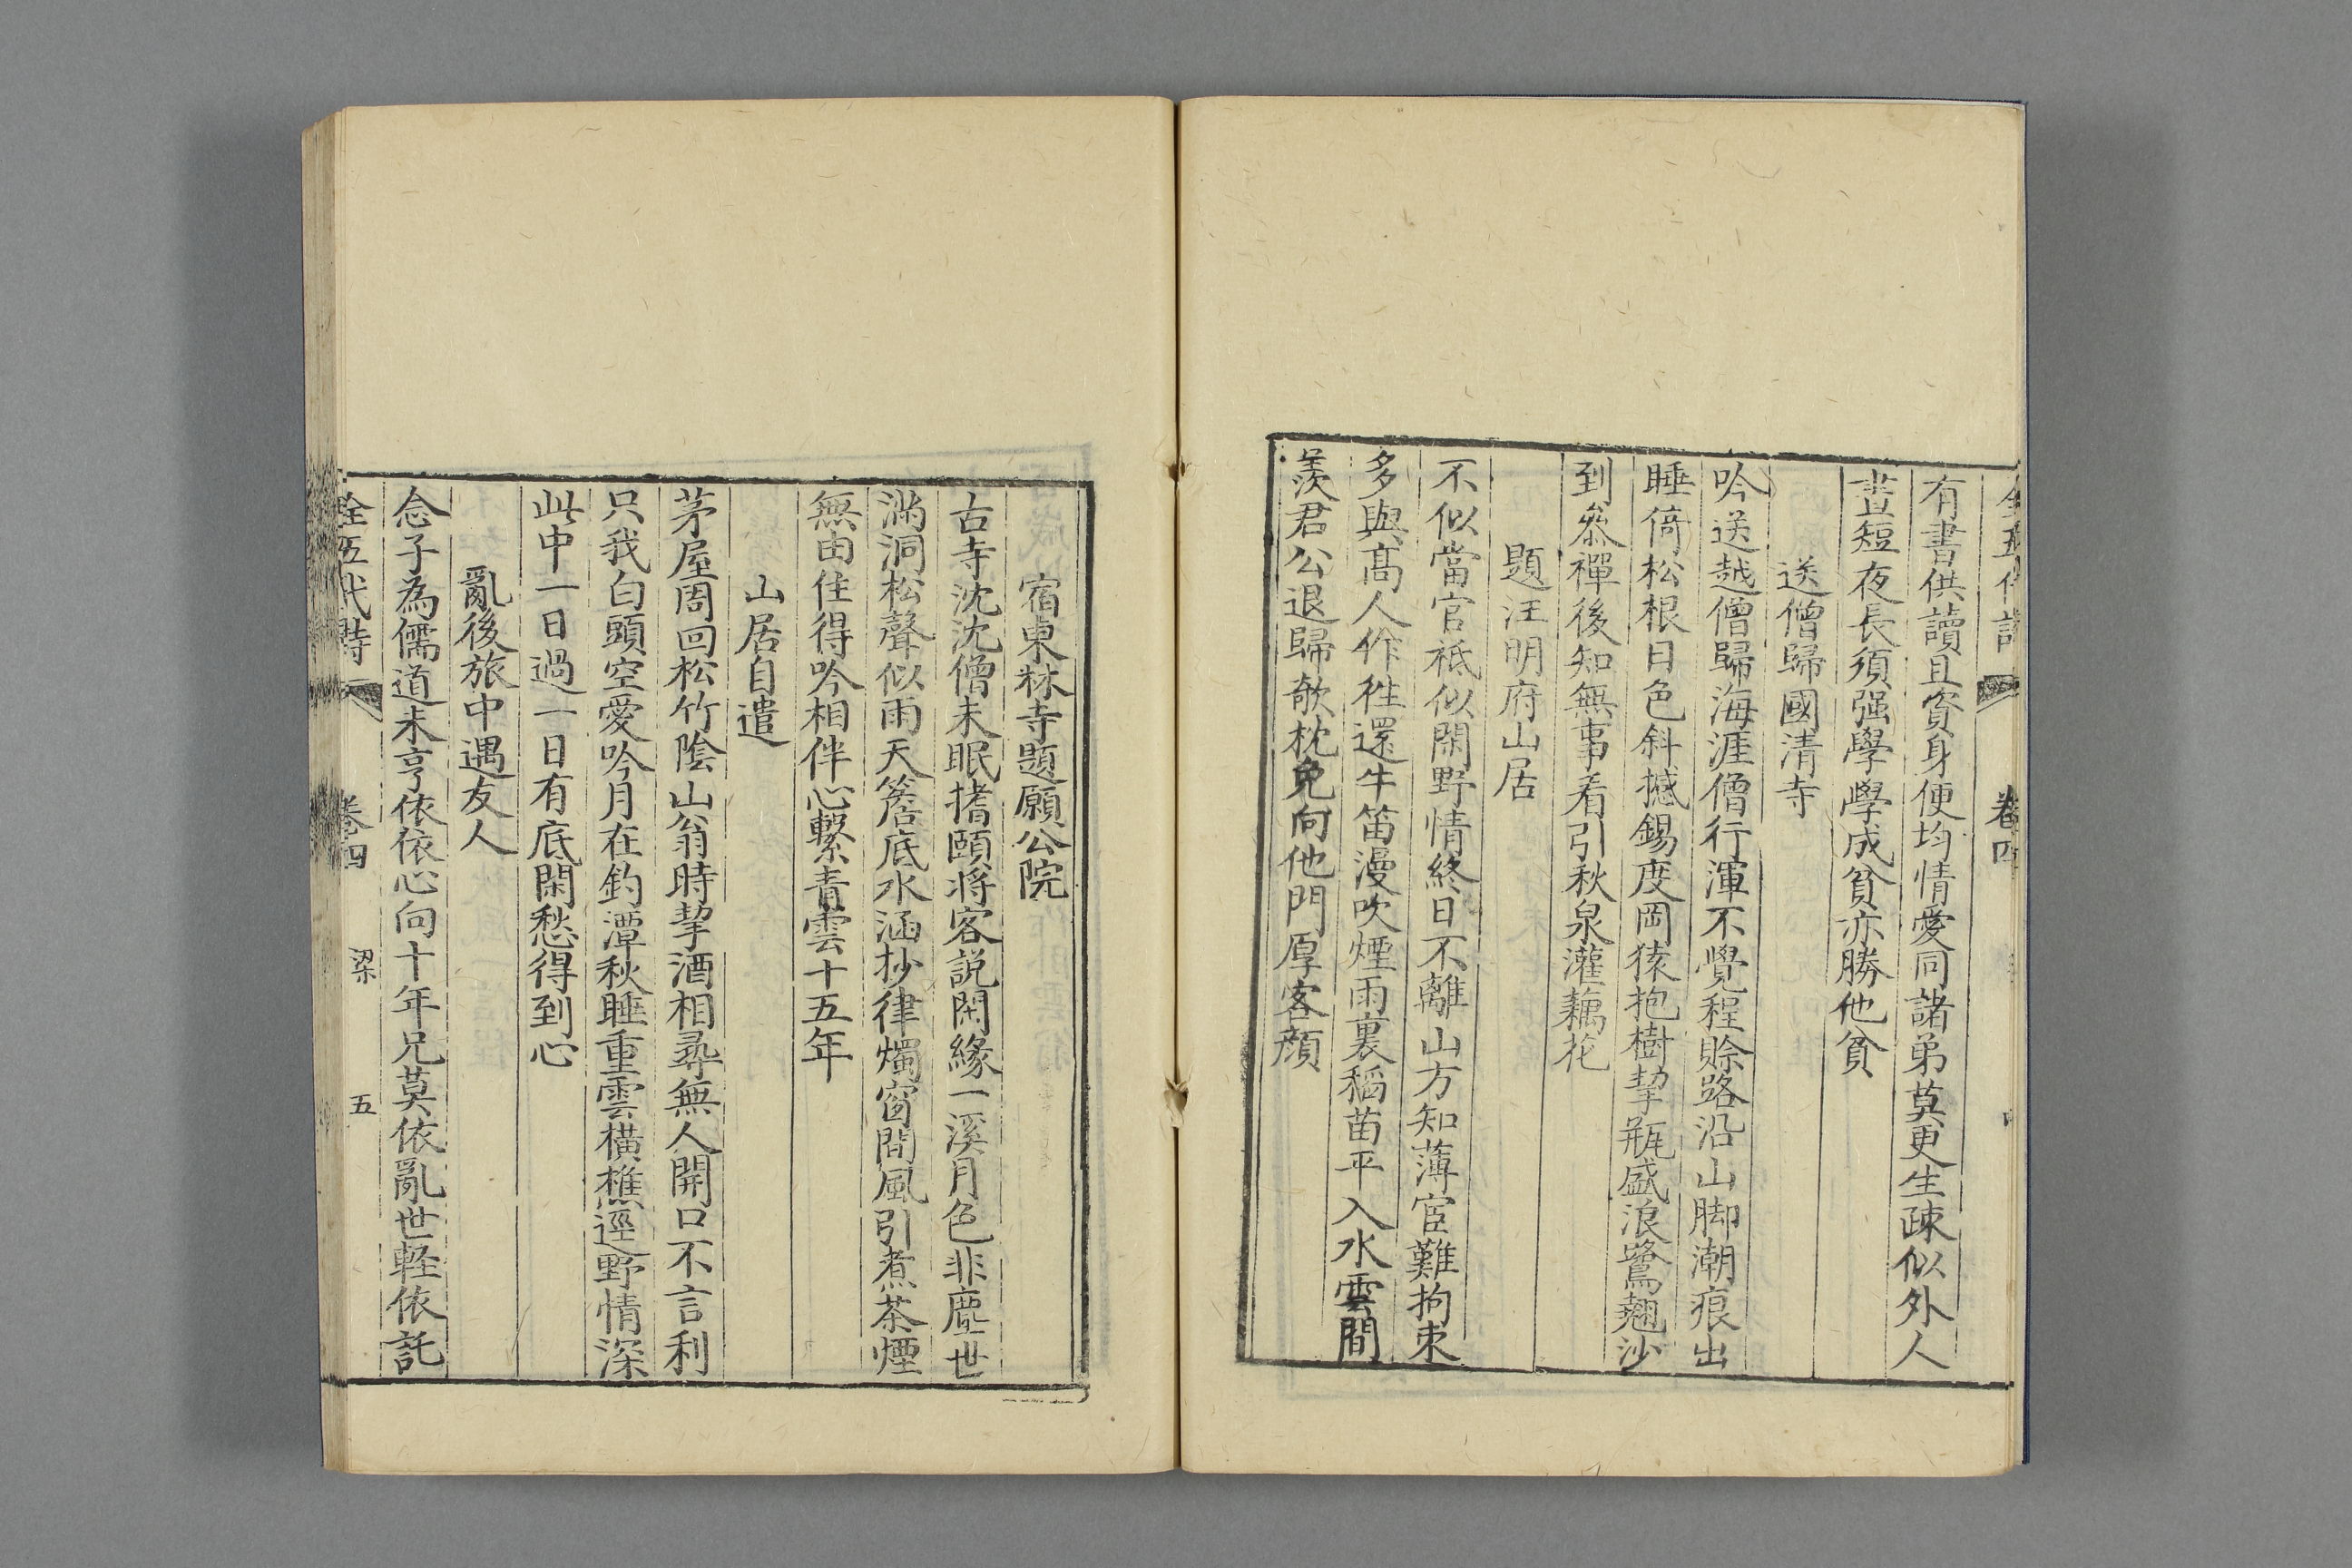 全五代詩
卷四
有書供讀且資身便均情愛同諸弟莫更生疎似外人
晝短夜長須强學學成貧亦勝他貧
送僧歸國清寺
吟送越僧歸海涯僧行渾不覺程賒路沿山脚潮痕出
睡倚松根日色斜撼錫度岡猿抱樹挈瓶盛浪鷺翹沙
到叅禪後知無事看引秋泉灌藕花
題汪明府山居
不似當官祗似閑野情終日不離山方知薄宦難拘束
多與髙人作徃還牛笛漫吹煙雨裏稻苗平入水雲間
羨君公退歸欹枕免向他門厚客顔
宿東林寺題願公院
古寺沈沈僧未眠搘頤將客説閑緣一溪月色非塵世
滿洞松聲似雨天簷底水涵抄律燭窗間風引煮茶煙
無由住得吟相伴心繫青雲十五年
山居自遣
茅屋周回松竹陰山翁時挈酒相尋無人開口不言利
只我白頭空愛吟月在釣潭秋睡重雲橫樵逕野情深
此中一日過一日有底閑愁得到心
亂後旅中遇友人
念子為儒道未亨依依心向十年兄莫依亂世輕依託
全五代詩
卷四
梁
五